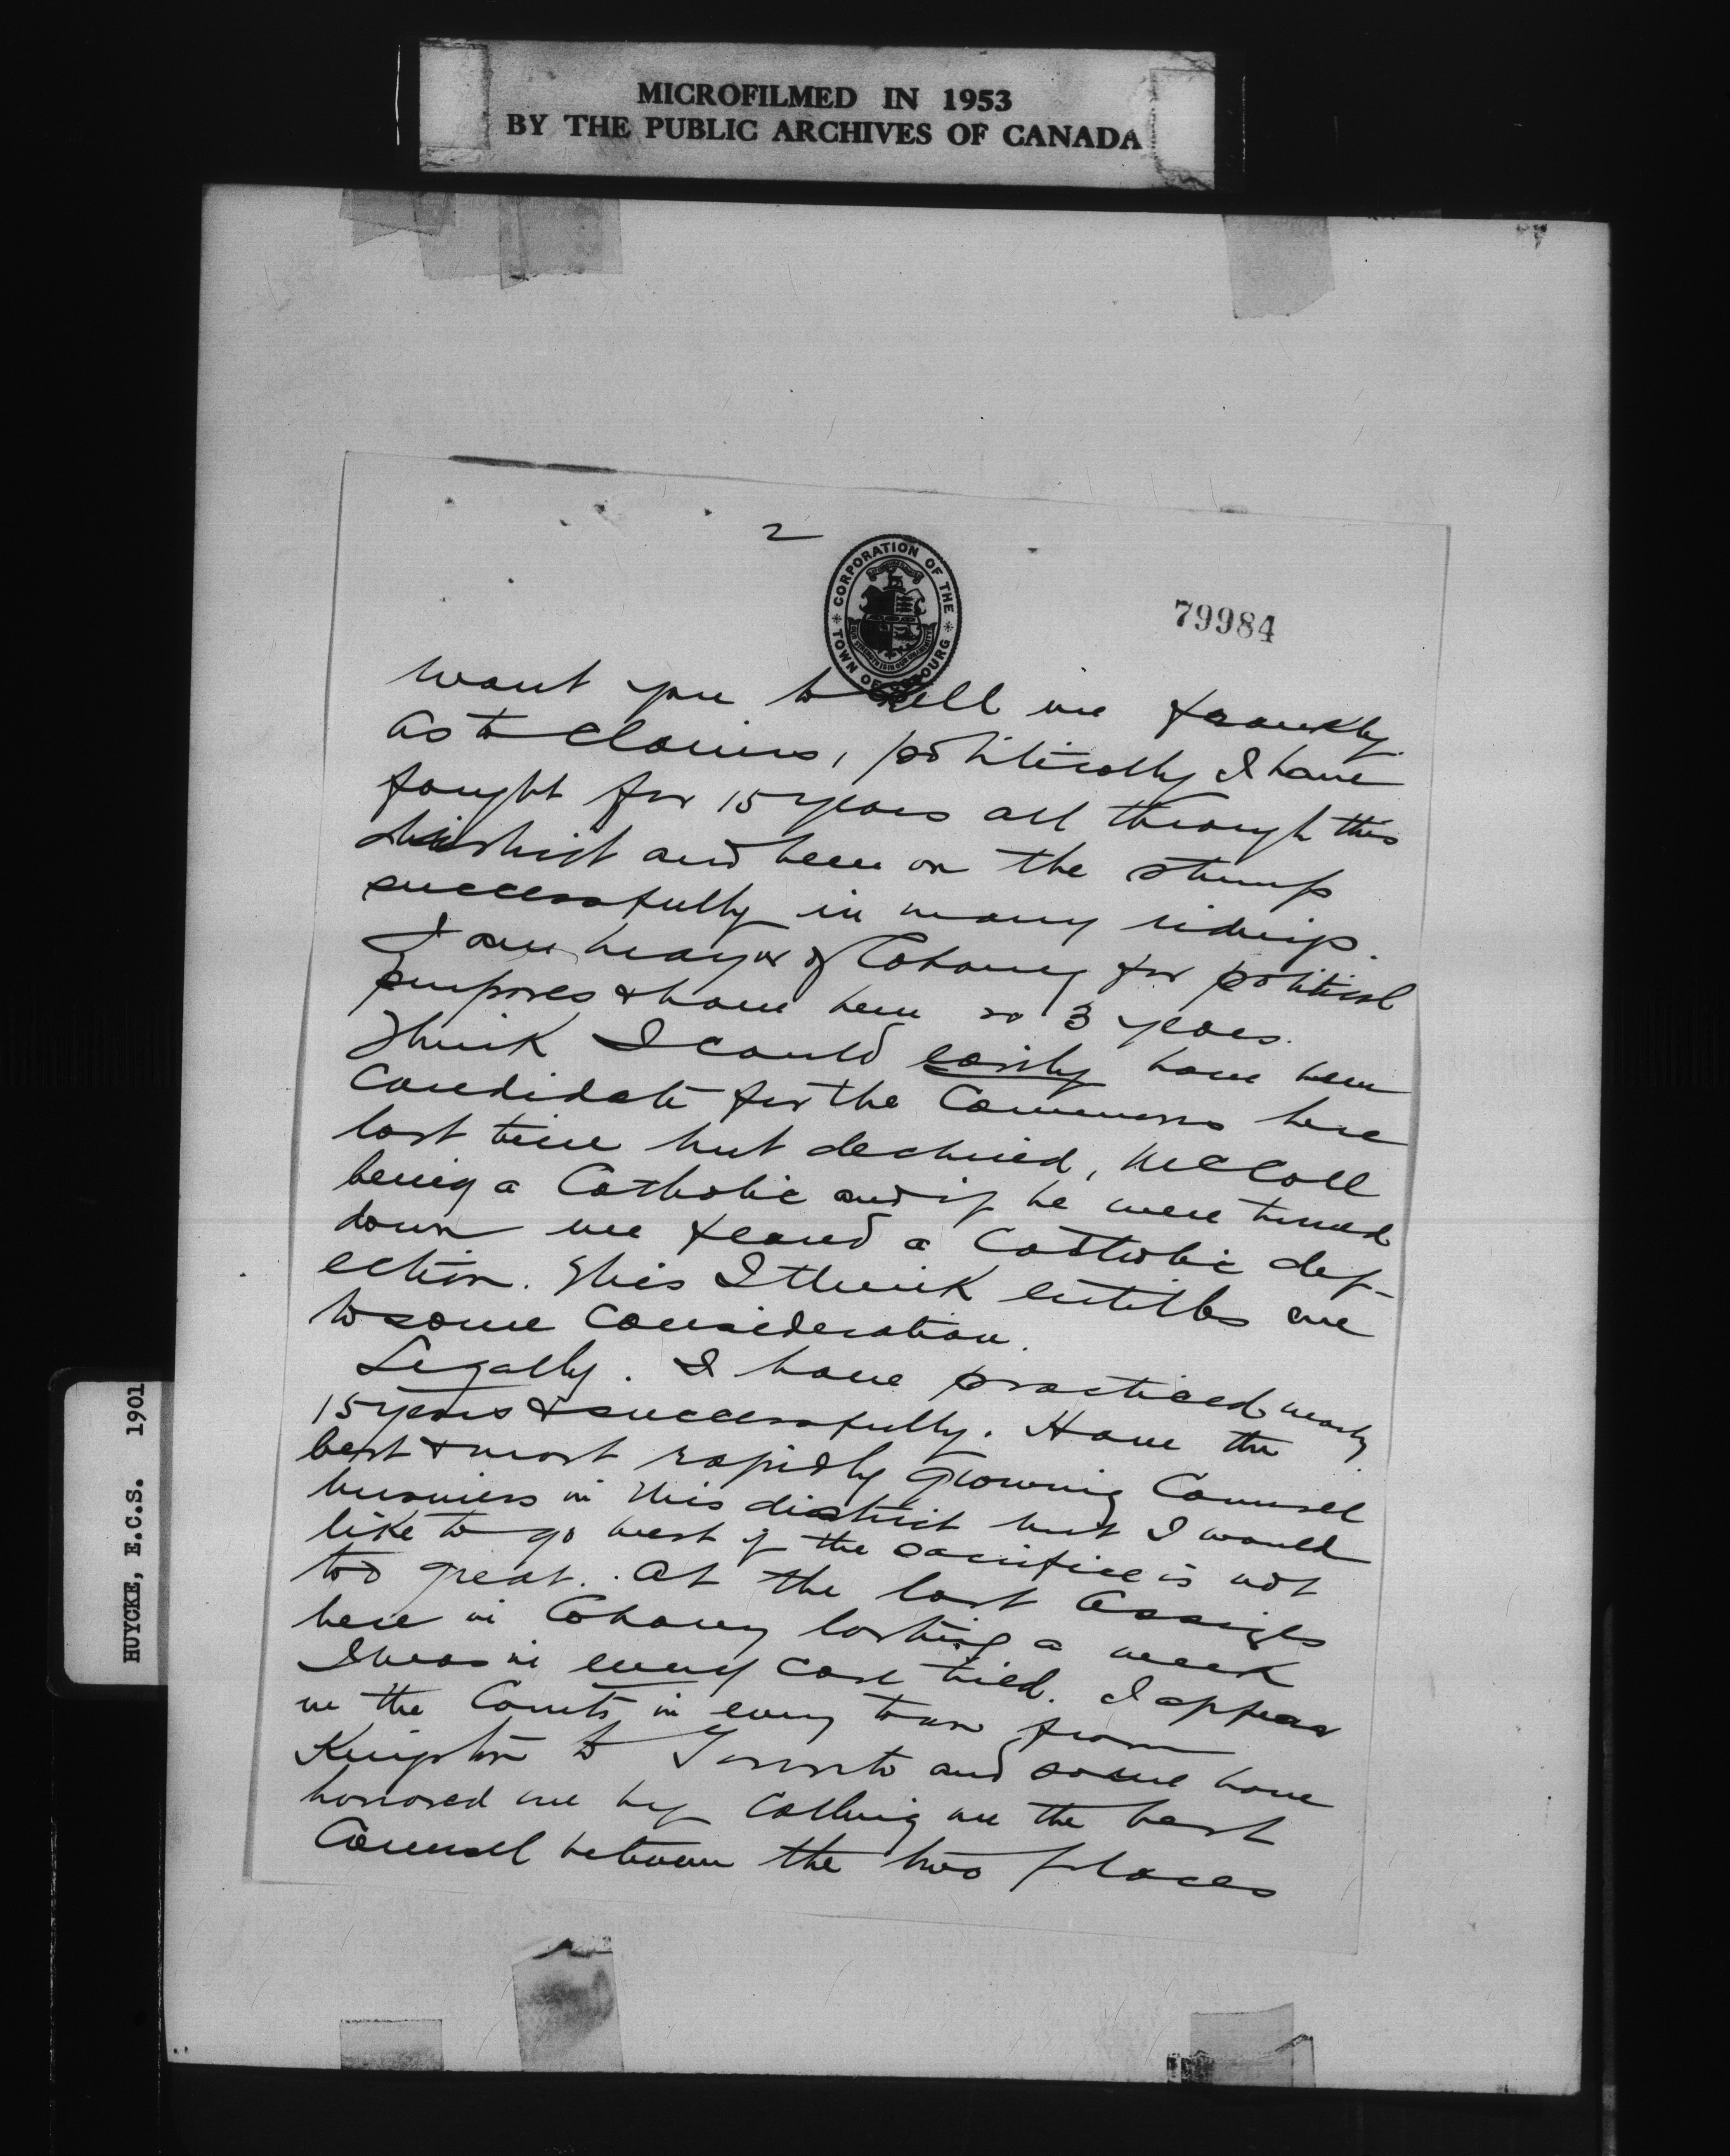 MICROFILMED IN 1953
BY THE PUBLIC ARCHIVES OF CANADA
2
CORPORATION OF THE
TOWN OF COBOURG
79984
want you to tell me frankly.
As to claims, politically I have
fought for 15 years all through this
district and been on the stump
successfully in many ridings.
I am mayor of Cobourg for political
purposes & have been so 3 years.
Think I could easily have been
candidate for the Commons here
last time but declined, McColl
being a Catholic and if he were turned
down we feared a Catholic def-
ection. This I think entitles me
to some consideration.
Legally. I have practiced nearly
15 years & successfully. Have the
best & most rapidly growing Counsel
business in this district but I would
like to go west if the sacrifice is not
too great. At the last Assizes
here in Cobourg lasting a week
I was in every case tried. I appear
in the Courts in every town from
Kingston to Toronto and some have
honored me by calling me the best
Counsel between the two places
HUYCKE, E.C.S. 1901